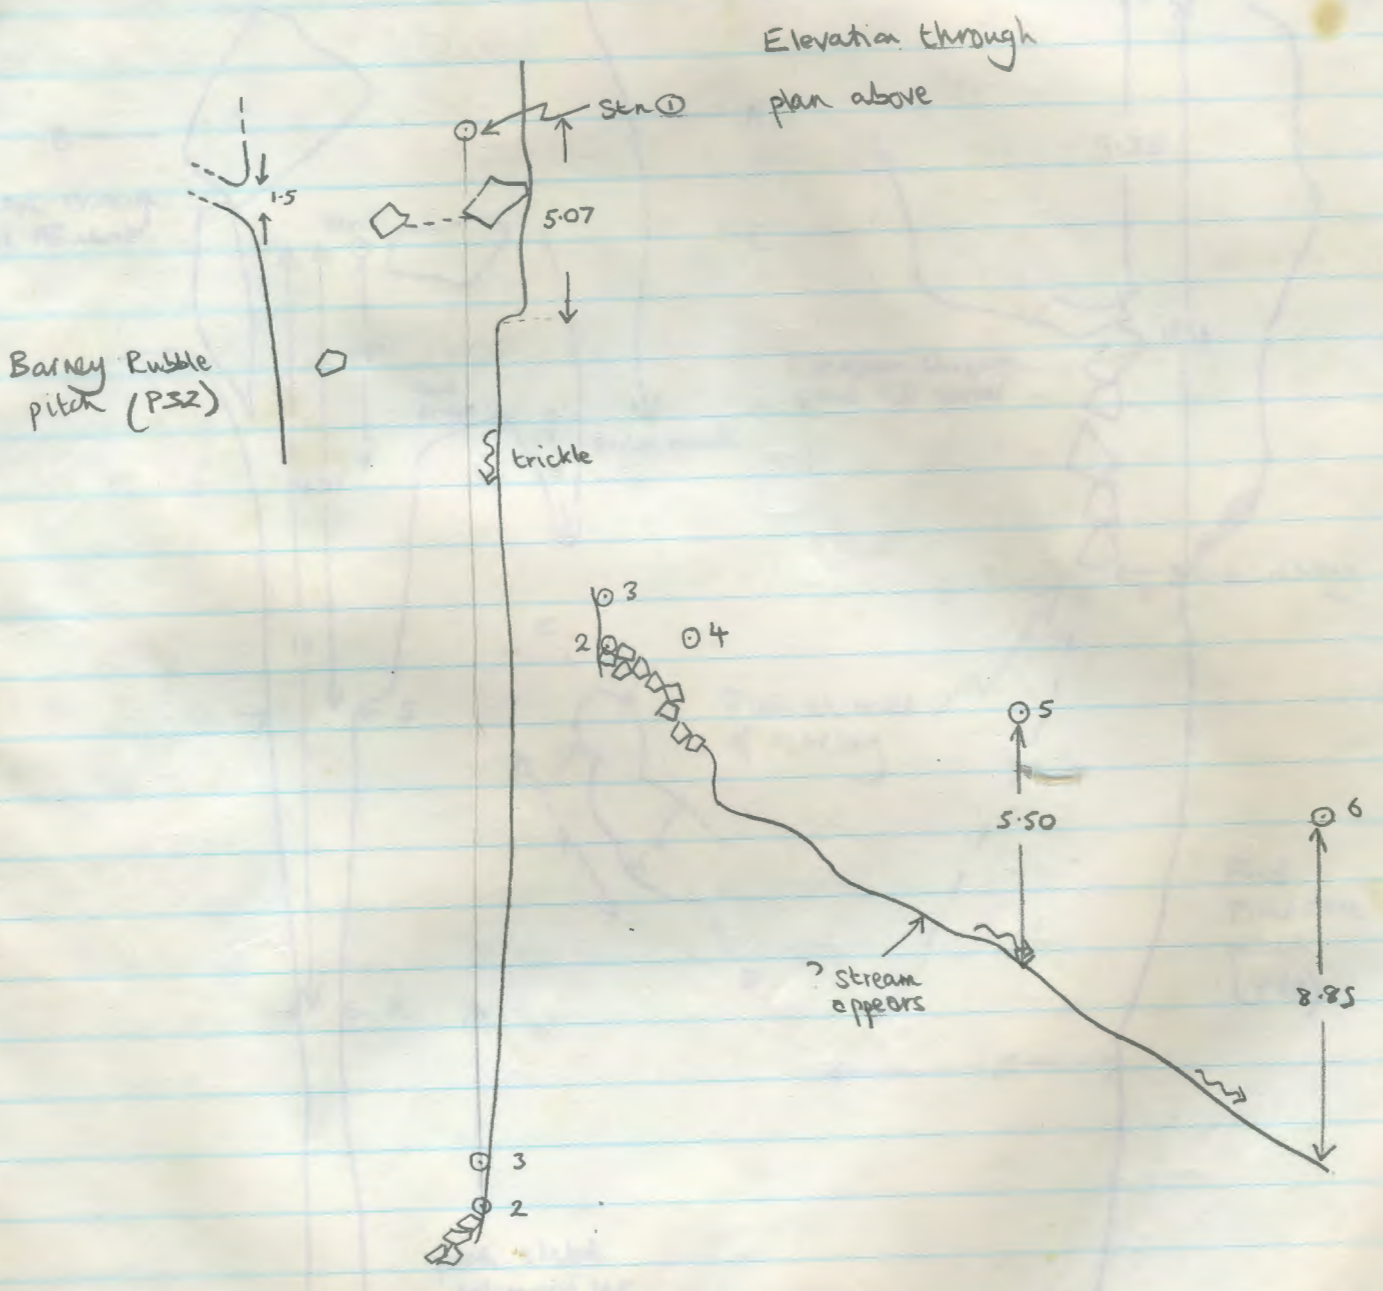 Elevation through
plan above
Stn ①
1.5
5.07
Barney Rubble
pitch (P32)
trickle
3
2
4
5
5.50
6
? stream
appears
8.85
3
2